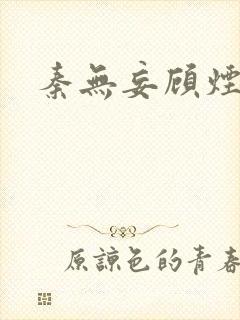 秦無妄顾煙
原諒色的青春